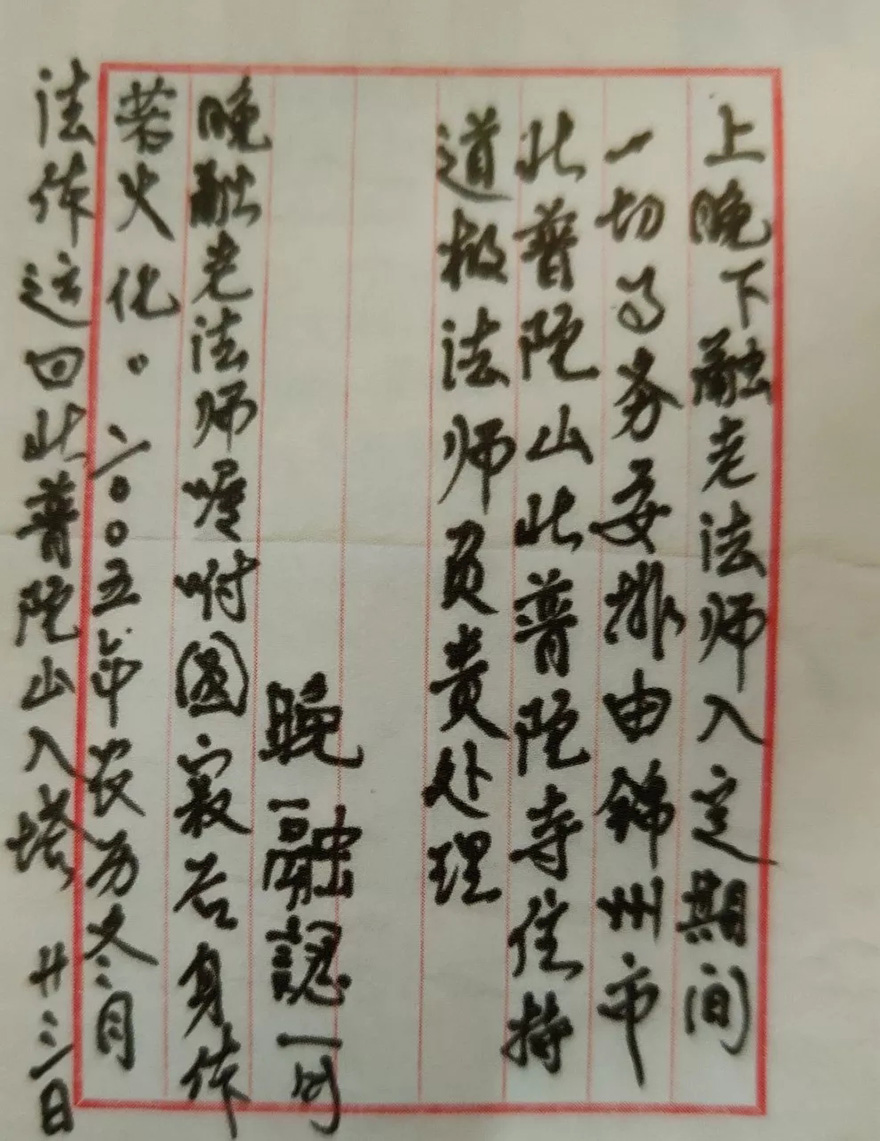 上晚下融老法师入定期间
一切事务安排由锦州市
北普陀山北普陀寺住持
道极法师负责处理
晚融認可
晚融老法师嘱咐圆寂后身体
若火化。二00五年农历冬月
法体运回北普陀山入塔 廿三日